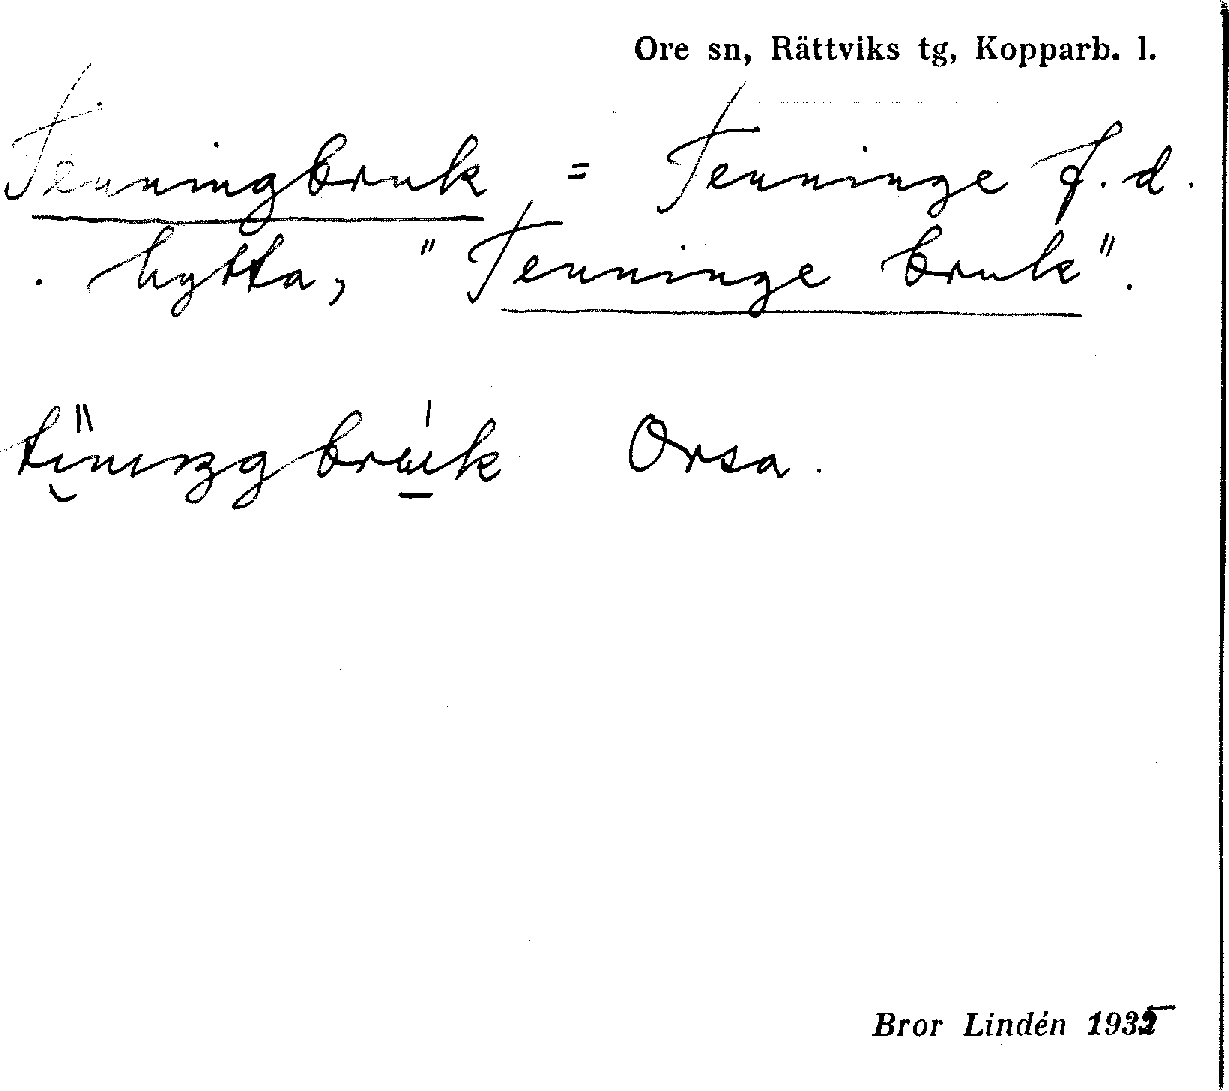 Ore sn, Rättviks tg, Kopparb. l.
Tenningbruk = Tenninge f.d.
. hytta, "Tenninge bruk".
Orsa.
Bror Lindén 1935